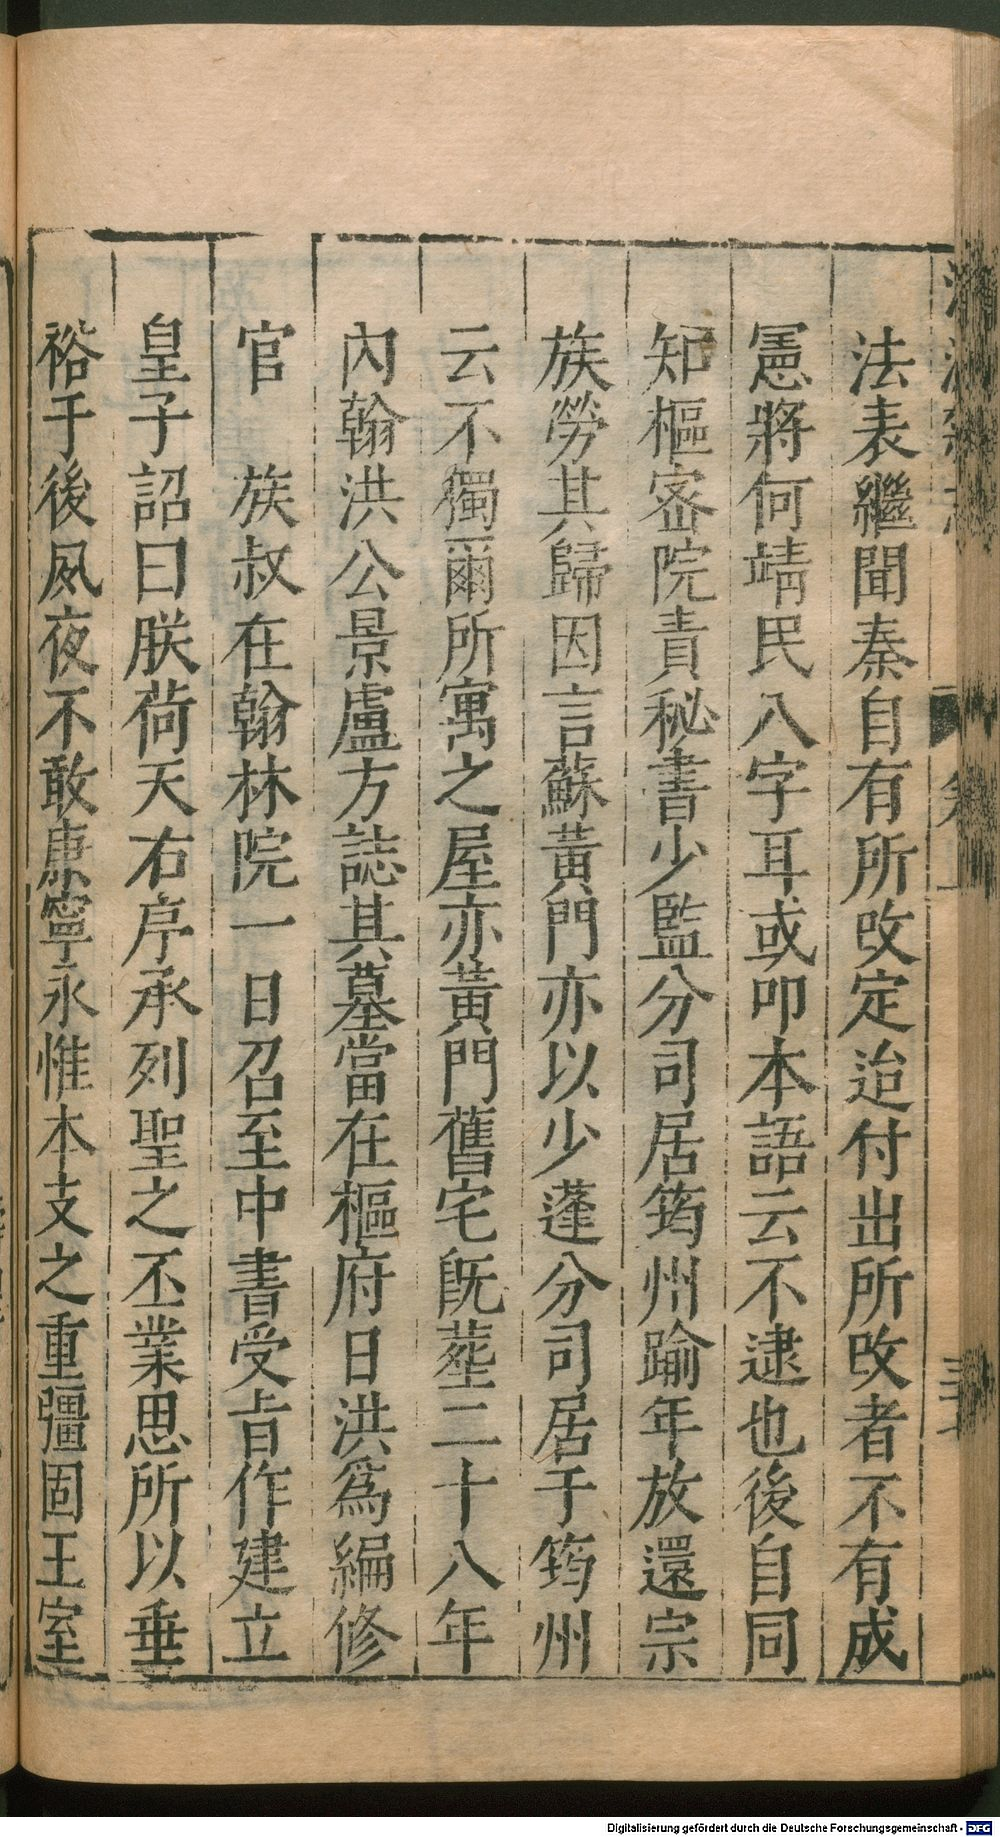 法表繼聞秦自有所改定迨付出所改者不有成
憲將何靖民八字耳或叩本語云不逮也後自同
知樞密院責秘書少監分司居筠州踰年放還宗
族勞其歸因言蘇黃門亦以少蓬分司居于筠州
云不獨爾所寓之屋亦黃門舊宅旣塟二十八年
內翰洪公景盧方誌其墓當在樞府日洪爲編修
官　族叔在翰林院一日召至中書受旨作建立
皇子詔曰朕荷天右序承列聖之丕業思所以垂
裕于後夙夜不敢康寧永惟本支之重彊固王室
Digitalisierung gefördert durch die Deutsche Forschungsgemeinschaft - DFG